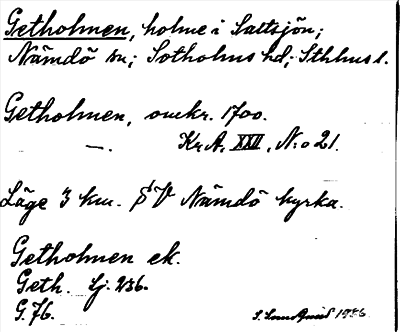 Getholmen, holme i Saltsjön;
Nämdö sn; Sotholms hd; Sthlms l.
Getholmen, omkr. 1700.
—. Kr.A. XXII, N:o 21.
Läge 3 km. SV Nämdö kyrka.
Getholmen ek.
Geth. Lj. 256.
G. 76.
1936